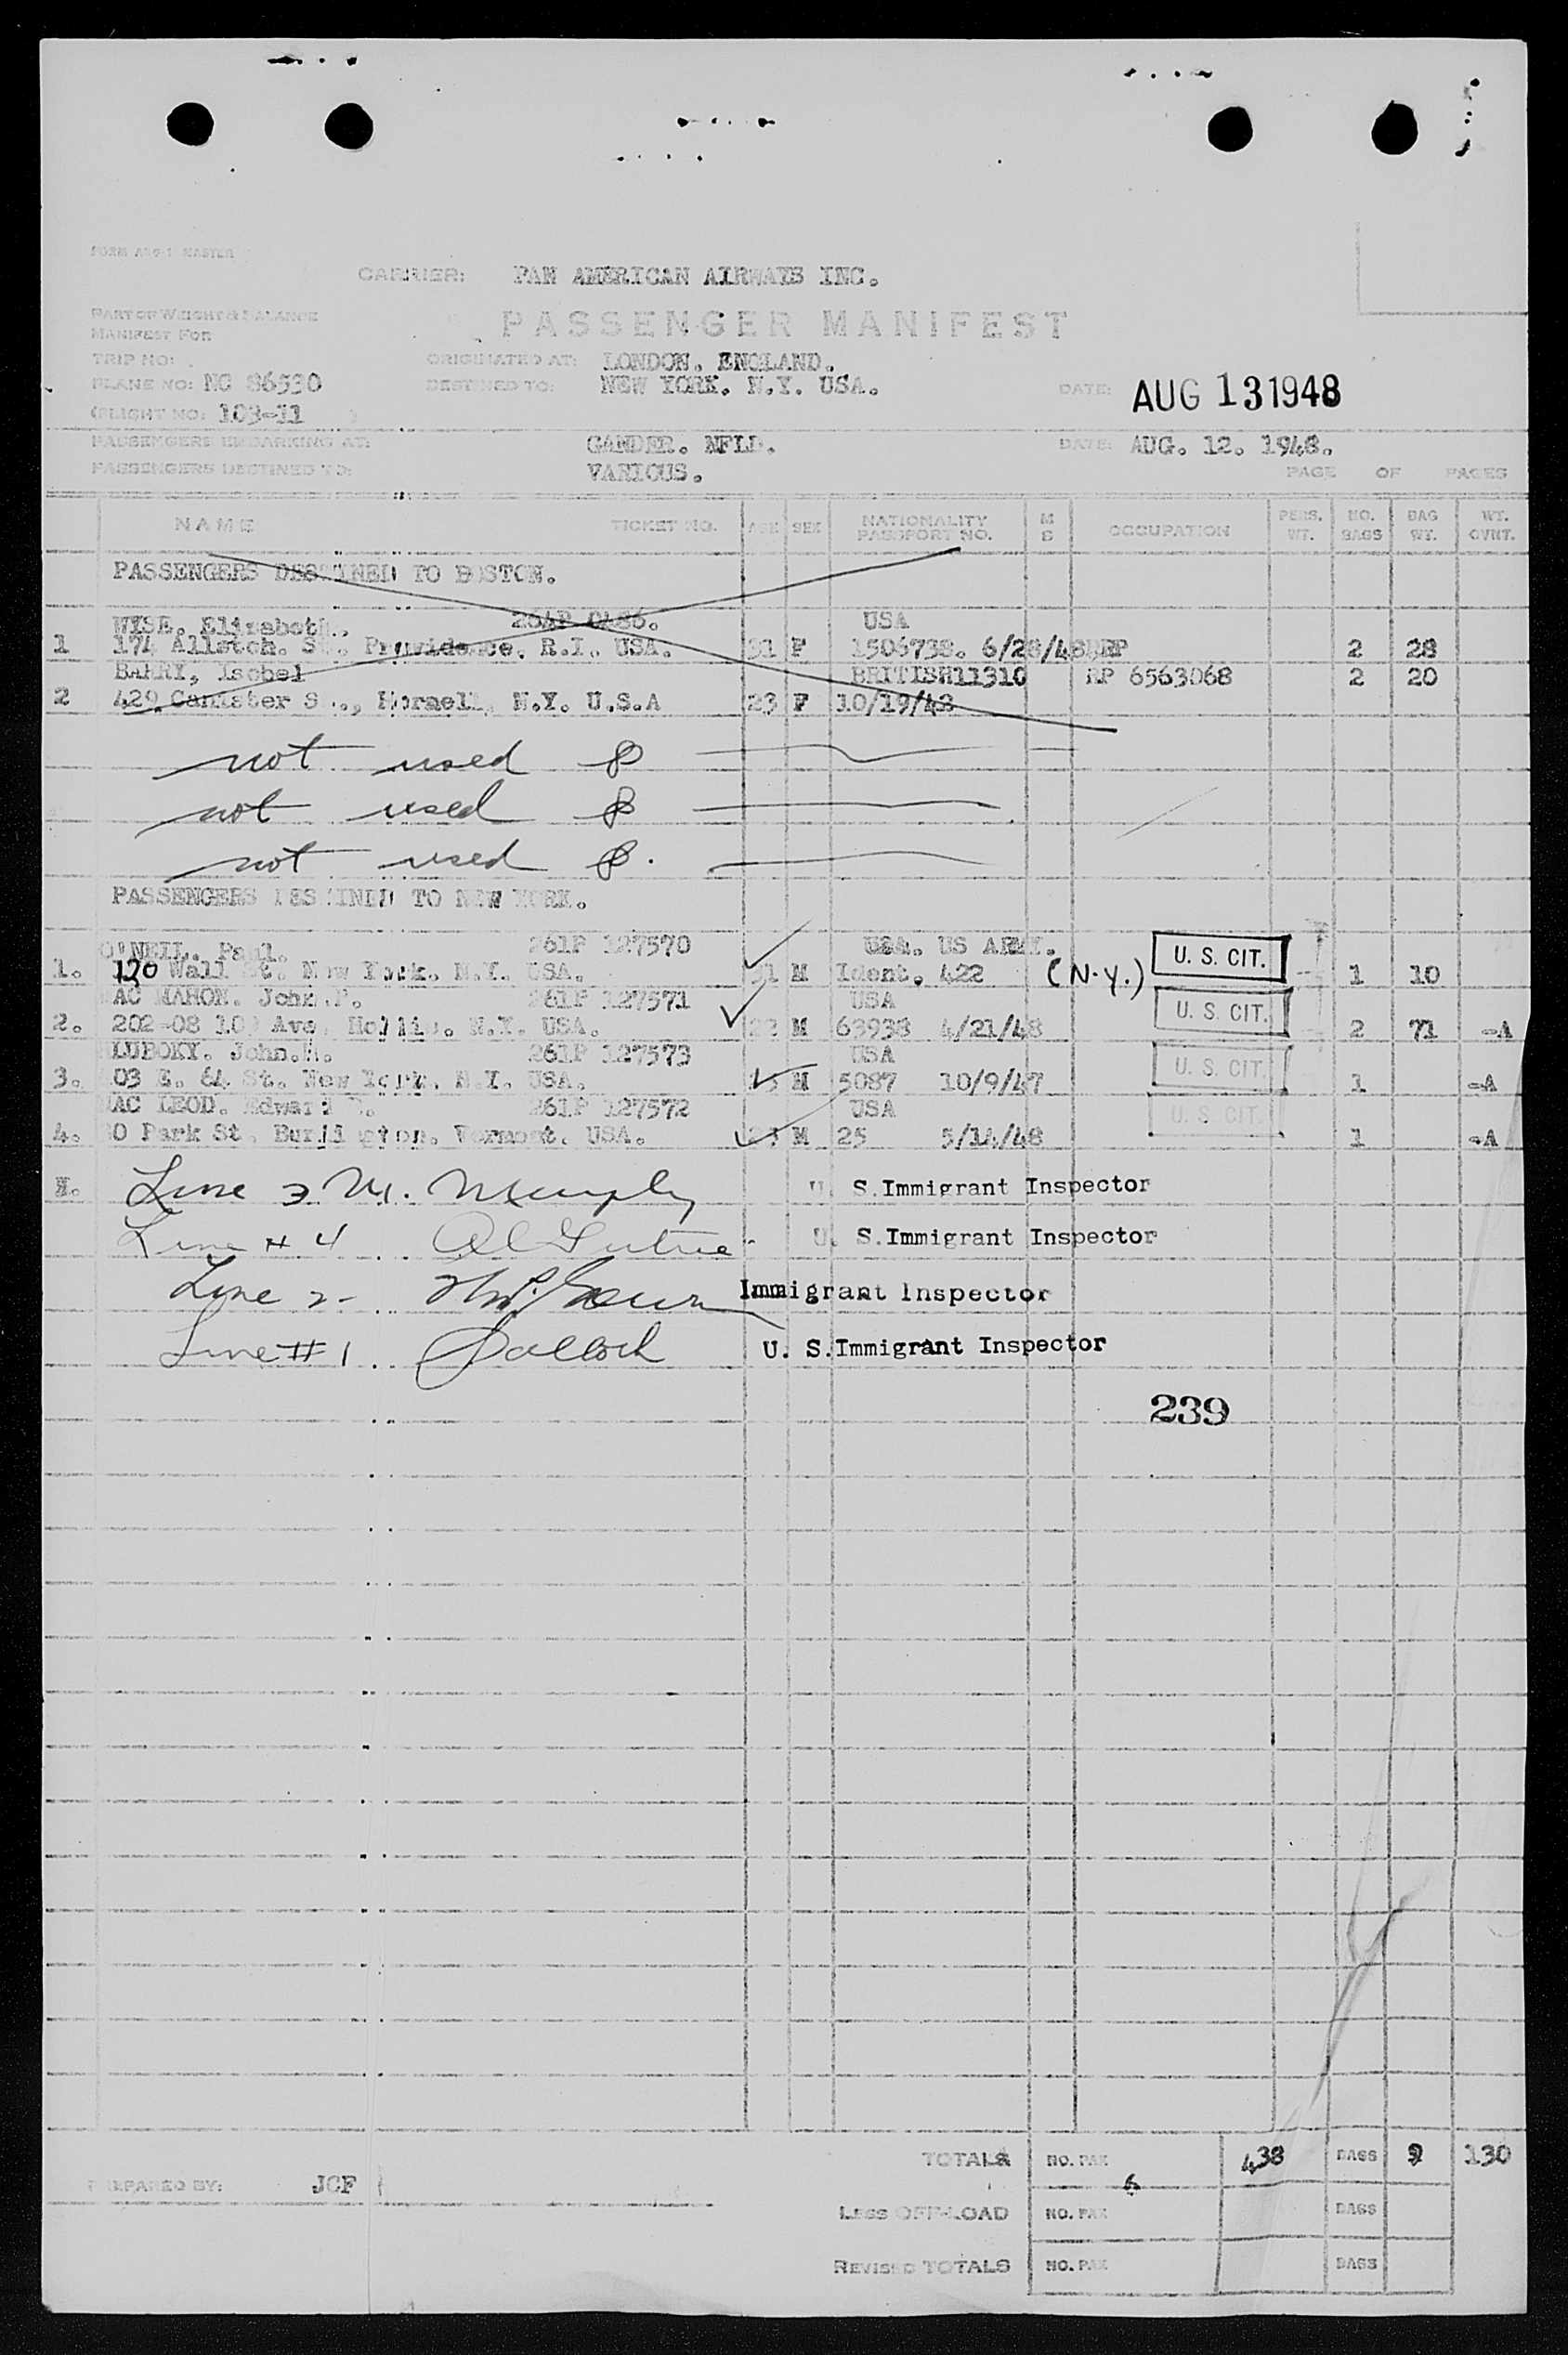 FORM MASTER
CARRIER: PAN AMERICAN AIRWAYS INC.
PART OF WEIGHT & BALANCE
MANIFEST FOR
PASSENGER MANIFEST
TRIP NO:
ORIGINATED AT: LONDON. ENGLAND.
PLANE NO: NC 86530
DESTINED TO: NEW YORK. N.Y. USA.
DATE: AUG 13 1948
FLIGHT NO: 103-11
PASSENGERS EMBARKING AT: GANDER. NFLD. DATE: AUG. 12. 1948.
PASSENGERS DESTINED TO: VARIOUS. PAGE OF PAGES
NAME TICKET NO. AGE SEX NATIONALITY PASSPORT NO. M S OCCUPATION PERS. WT. NO. BAGS BAG WT. WT. OVRT.
PASSENGERS DESTINED TO BOSTON.
WISE. Elizabeth. USA
1 174 Allston. St. Providence. R.I. USA. 31 F 1506738. 6/28/48 2 28
BARRY, Isobel BRITISH11310 RP 6563068 2 20
2 429 Canister S ., Hornell, N.Y. U.S.A 23 F 10/19/48
not used
not used
not used
PASSENGERS DESTINED TO NEW YORK.
O'NEIL. Paul. 261P 127570 USA. US ARMY.
1. 120 Wall St. New York. N.Y. USA. M Ident. 422 (N.Y.) U. S. CIT. 1 10
MAC MAHON. John.P. 261P 127571 USA
2. 202-08 10 Ave. Hollis. N.Y. USA. 22 M 63938 4/21/48 U. S. CIT. 2 71 -A
HLUBOKY. John.M. 261P 127573 USA
3. 03 E. 64 St. New York. N.Y. USA. M 5087 10/9/47 U. S. CIT. 1 -A
MAC LEOD. Edward 261P 127572 USA
4. 0 Park St. Burlington. Vermont. USA. M 25 5/14/48 U. S. CIT. 1 -A
Line 3 M. Murphy U. S.Immigrant Inspector
Line # 4 U. S.Immigrant Inspector
Line 2- Immigrant Inspector
Line # 1 U. S.Immigrant Inspector
239
TOTALS NO. PAX 6 438 BAGS 9 130
PREPARED BY: JCF
LESS OFF-LOAD NO. PAX BAGS
REVISED TOTALS NO. PAX BAGS